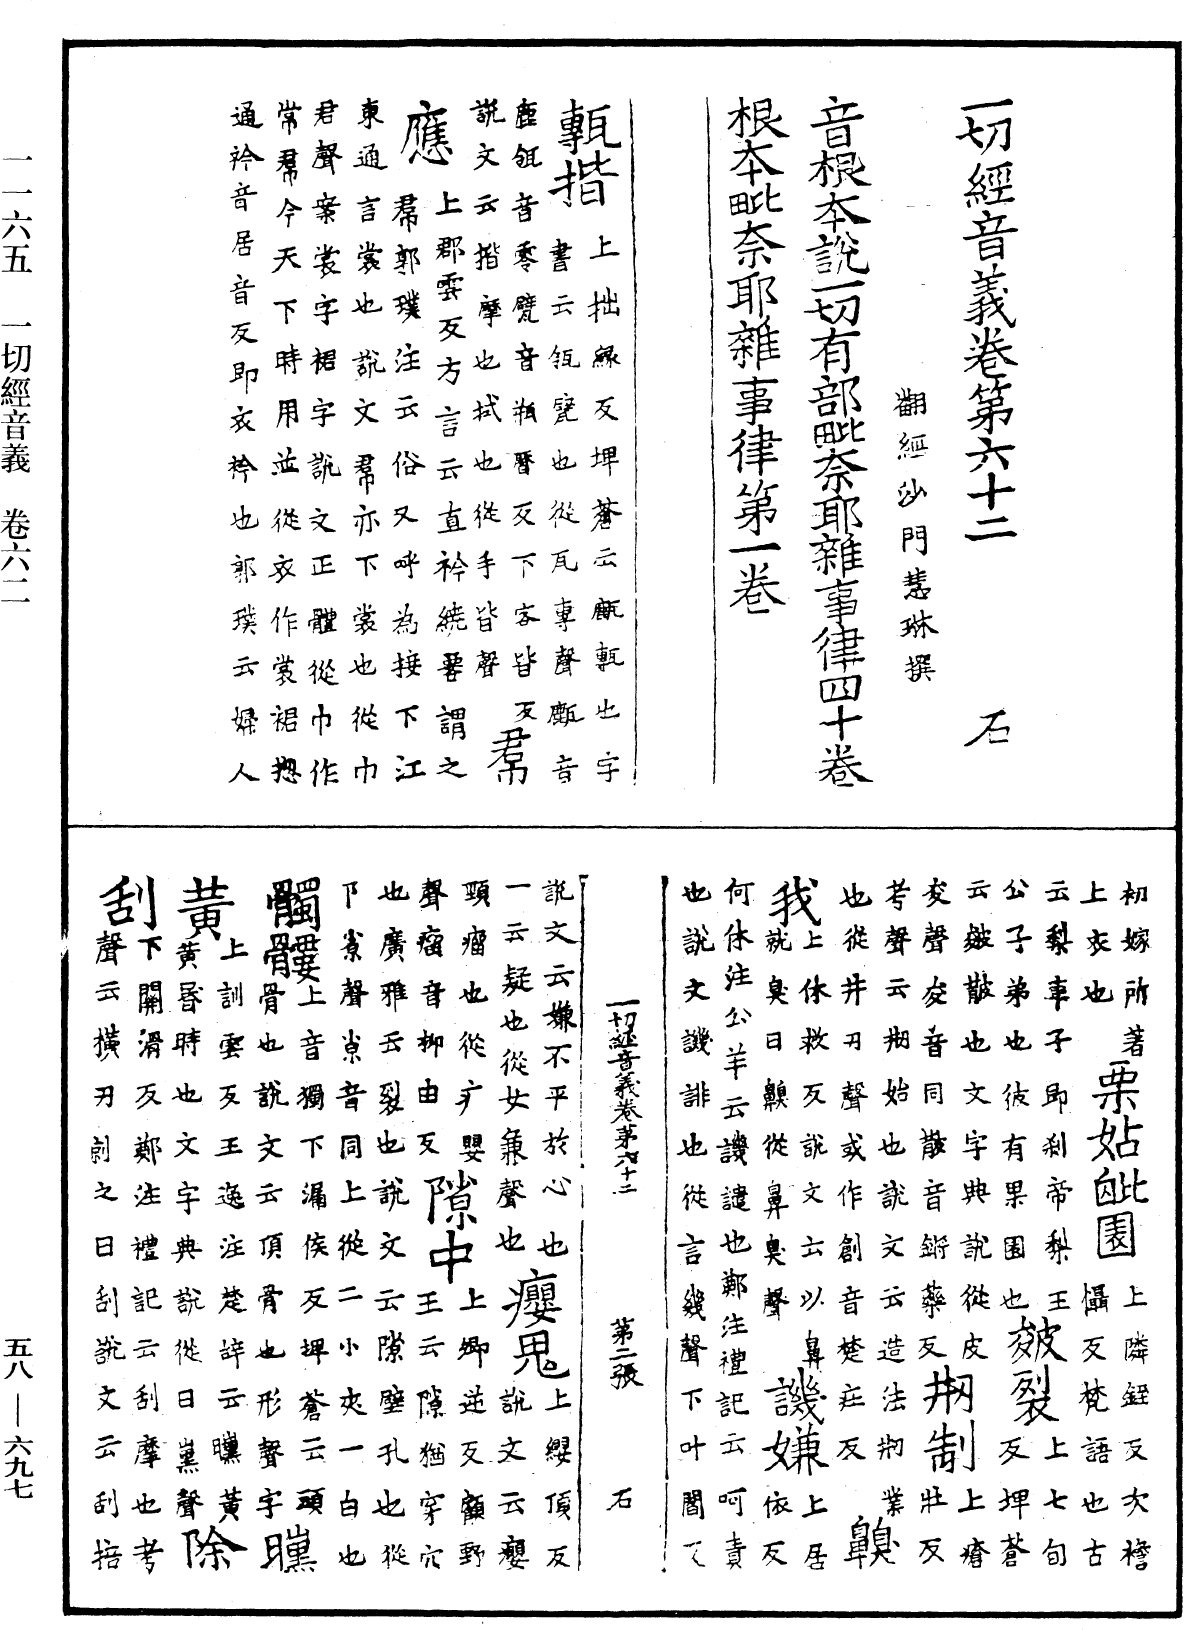 一切經音義卷第六十二　石
翻經沙門慧琳撰
音根本說一切有部毗奈耶雜事律四十卷
根本毗奈耶雜事律第一卷
甎揩上拙緣反埤蒼云甋甎也字
書云瓴甓也從瓦專聲甋音
鹿瓴音零甓音瓶曆反下客皆反
說文云揩摩也拭也從手皆聲
帬
應上郡雲反方言云直衿繞䙅謂之
帬郭璞注云俗又呼為接下江
東通言裳也說文帬亦下裳也從巾
君聲案裳字裙字說文正體從巾作
常帬今天下時用並從衣作裳裙揔
通衿音居音反即衣衿也郭璞云婦人
初嫁所著
上衣也
栗姑毗園上隣銍反次襜
懾反梵語也古
云梨車子即剎帝梨王
公子弟也彼有果園也
皴裂上七旬
反埤蒼
云皴皵也文字典說從皮
夋聲夋音同皵音鏘藥反
刱制上瘡
壯反
考聲云刱始也說文云造法刱業
也從井刅聲或作創音楚疰反
齅
我上休救反說文云以鼻
就臭曰齅從鼻臭聲
譏嫌上居
依反
何休注公羊云譏譴也鄭注禮記云呵責
也說文譏誹也從言幾聲下叶閻反
一切經音義卷第六十二　第二張　石
說文云嫌不平於心也
一云疑也從女兼聲也
癭鬼上纓頂反
說文云癭
頸瘤也從疒嬰
聲瘤音柳由反
隙中上卿逆反顧野
王云隙猶穿穴
也廣雅云裂也說文云隙壁孔也從
阝𡭴聲𡭴音同上從二小夾一白也
髑髏上音獨下漏侯反埤蒼云頭
骨也說文云頂骨也形聲字
曛
黃上訓雲反王逸注楚辭云曛黃
黃昬時也文字典說從日熏聲
除
刮下關滑反鄭注禮記云刮摩也考
聲云橫刃剒之曰刮說文云刮掊
一一六五　一切經音義　卷六二
五八—六九七